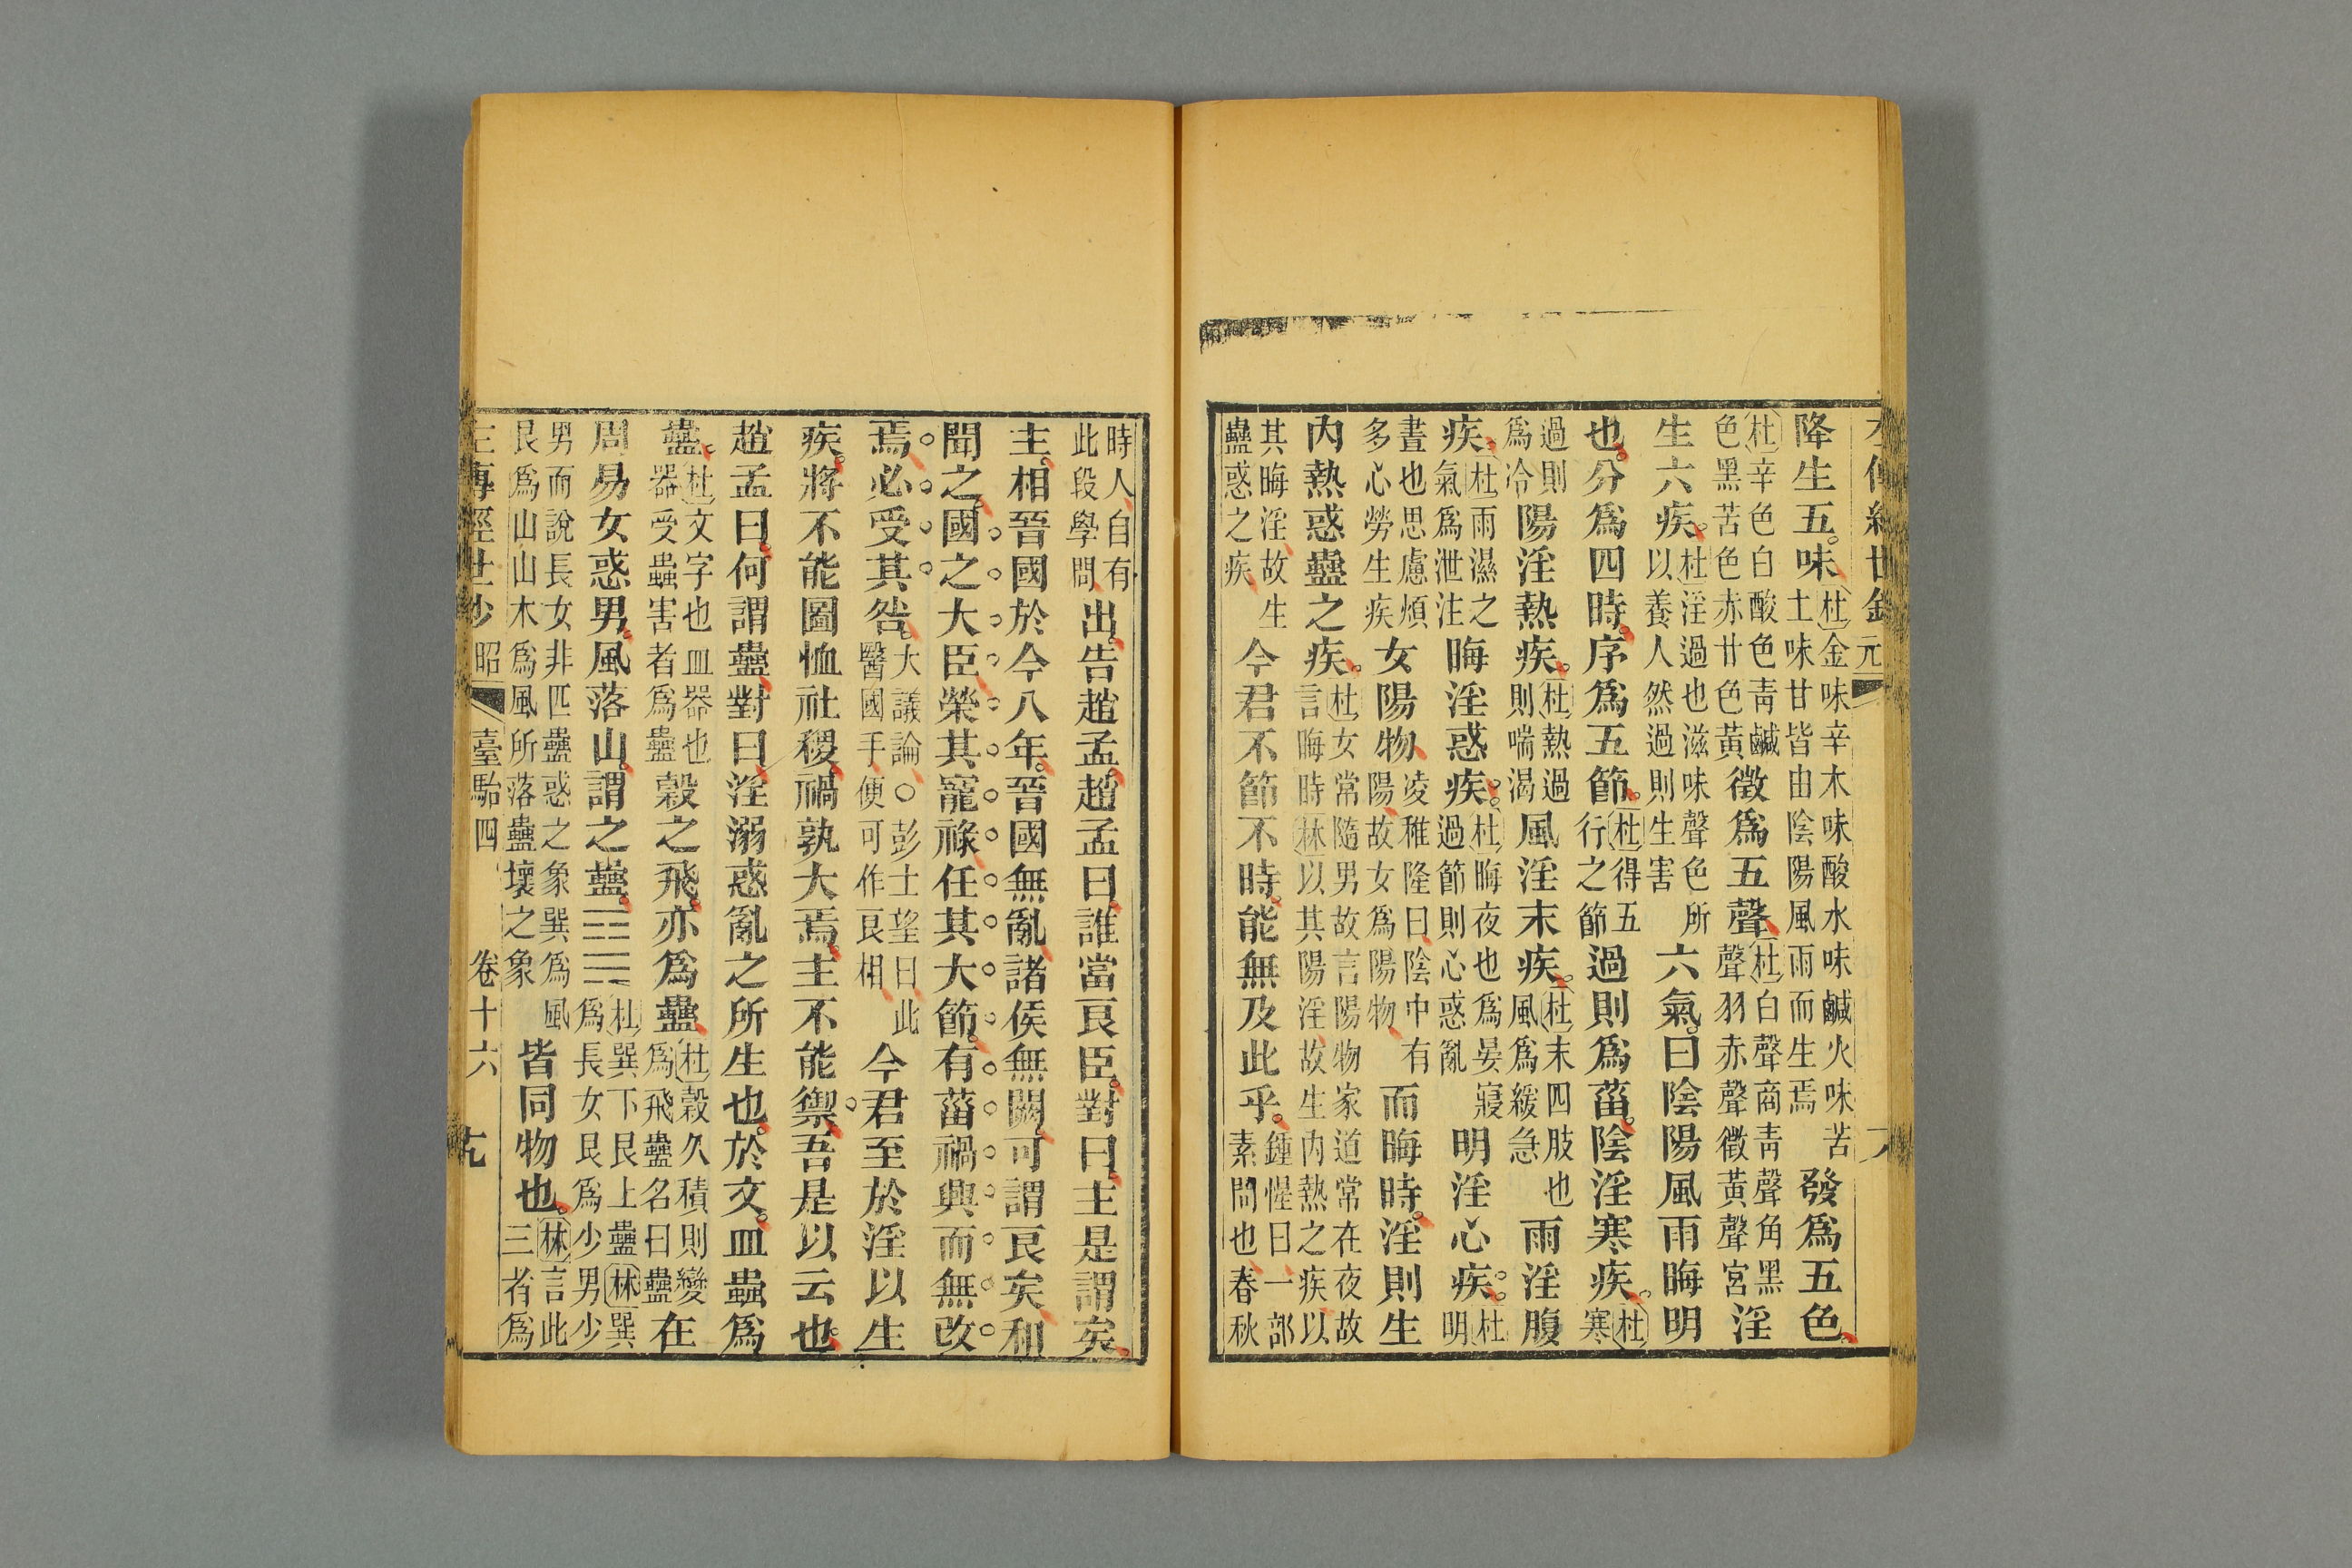 降生五味杜金味辛木味酸水味鹹火味苦土味甘皆由陰陽風雨而生焉發爲五色
杜辛色白酸色靑鹹色黑苦色赤甘色黃徵爲五聲杜白聲商靑聲角黑聲羽赤聲徵黃聲宮淫
生六疾杜淫過也滋味聲色所以養人然過則生害六氣曰陰陽風雨晦明
也分爲四時序爲五節杜得五行之節過則爲菑陰淫寒疾杜寒
過則爲冷陽淫熱疾杜熱過則喘渴風淫末疾杜末四肢也風爲緩急雨淫腹
疾杜雨濕之氣爲泄注晦淫惑疾杜晦夜也爲晏寢過節則心惑亂明淫心疾杜明
晝也思慮煩多心勞生疾女陽物凌稚隆曰陰中有陽故女爲陽物而晦時淫則生
內熱惑蠱之疾杜女常隨男故言陽物家道常在夜故言晦時林以其陽淫故生內熱之疾以
其晦淫故生蠱惑之疾今君不節不時能無及此乎鍾惺曰一部素問也春秋
時人自有此段學問出告趙孟趙孟曰誰當良臣對曰主是謂矣
主相晉國於今八年晉國無亂諸侯無闕可謂良矣和
聞之國之大臣榮其寵祿任其大節有菑禍興而無改
焉必受其咎大議論○彭士望曰此醫國手便可作良相今君至於淫以生
疾將不能圖恤社稷禍孰大焉主不能禦吾是以云也
趙孟曰何謂蠱對曰淫溺惑亂之所生也於文皿蟲爲
蠱杜文字也皿器也器受蟲害者爲蠱穀之飛亦爲蠱杜穀久積則變爲飛蠱名曰蠱在
周易女惑男風落山謂之蠱䷑杜巽下艮上蠱林巽爲長女艮爲少男少
男而說長女非匹蠱惑之象巽爲風艮爲山山木爲風所落蠱壞之象皆同物也林言此三者爲
左傳經世鈔 昭 臺駘四 卷十六